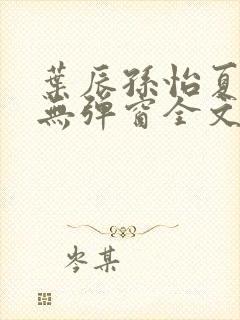 葉辰孫怡夏
無彈窗全文
岑某